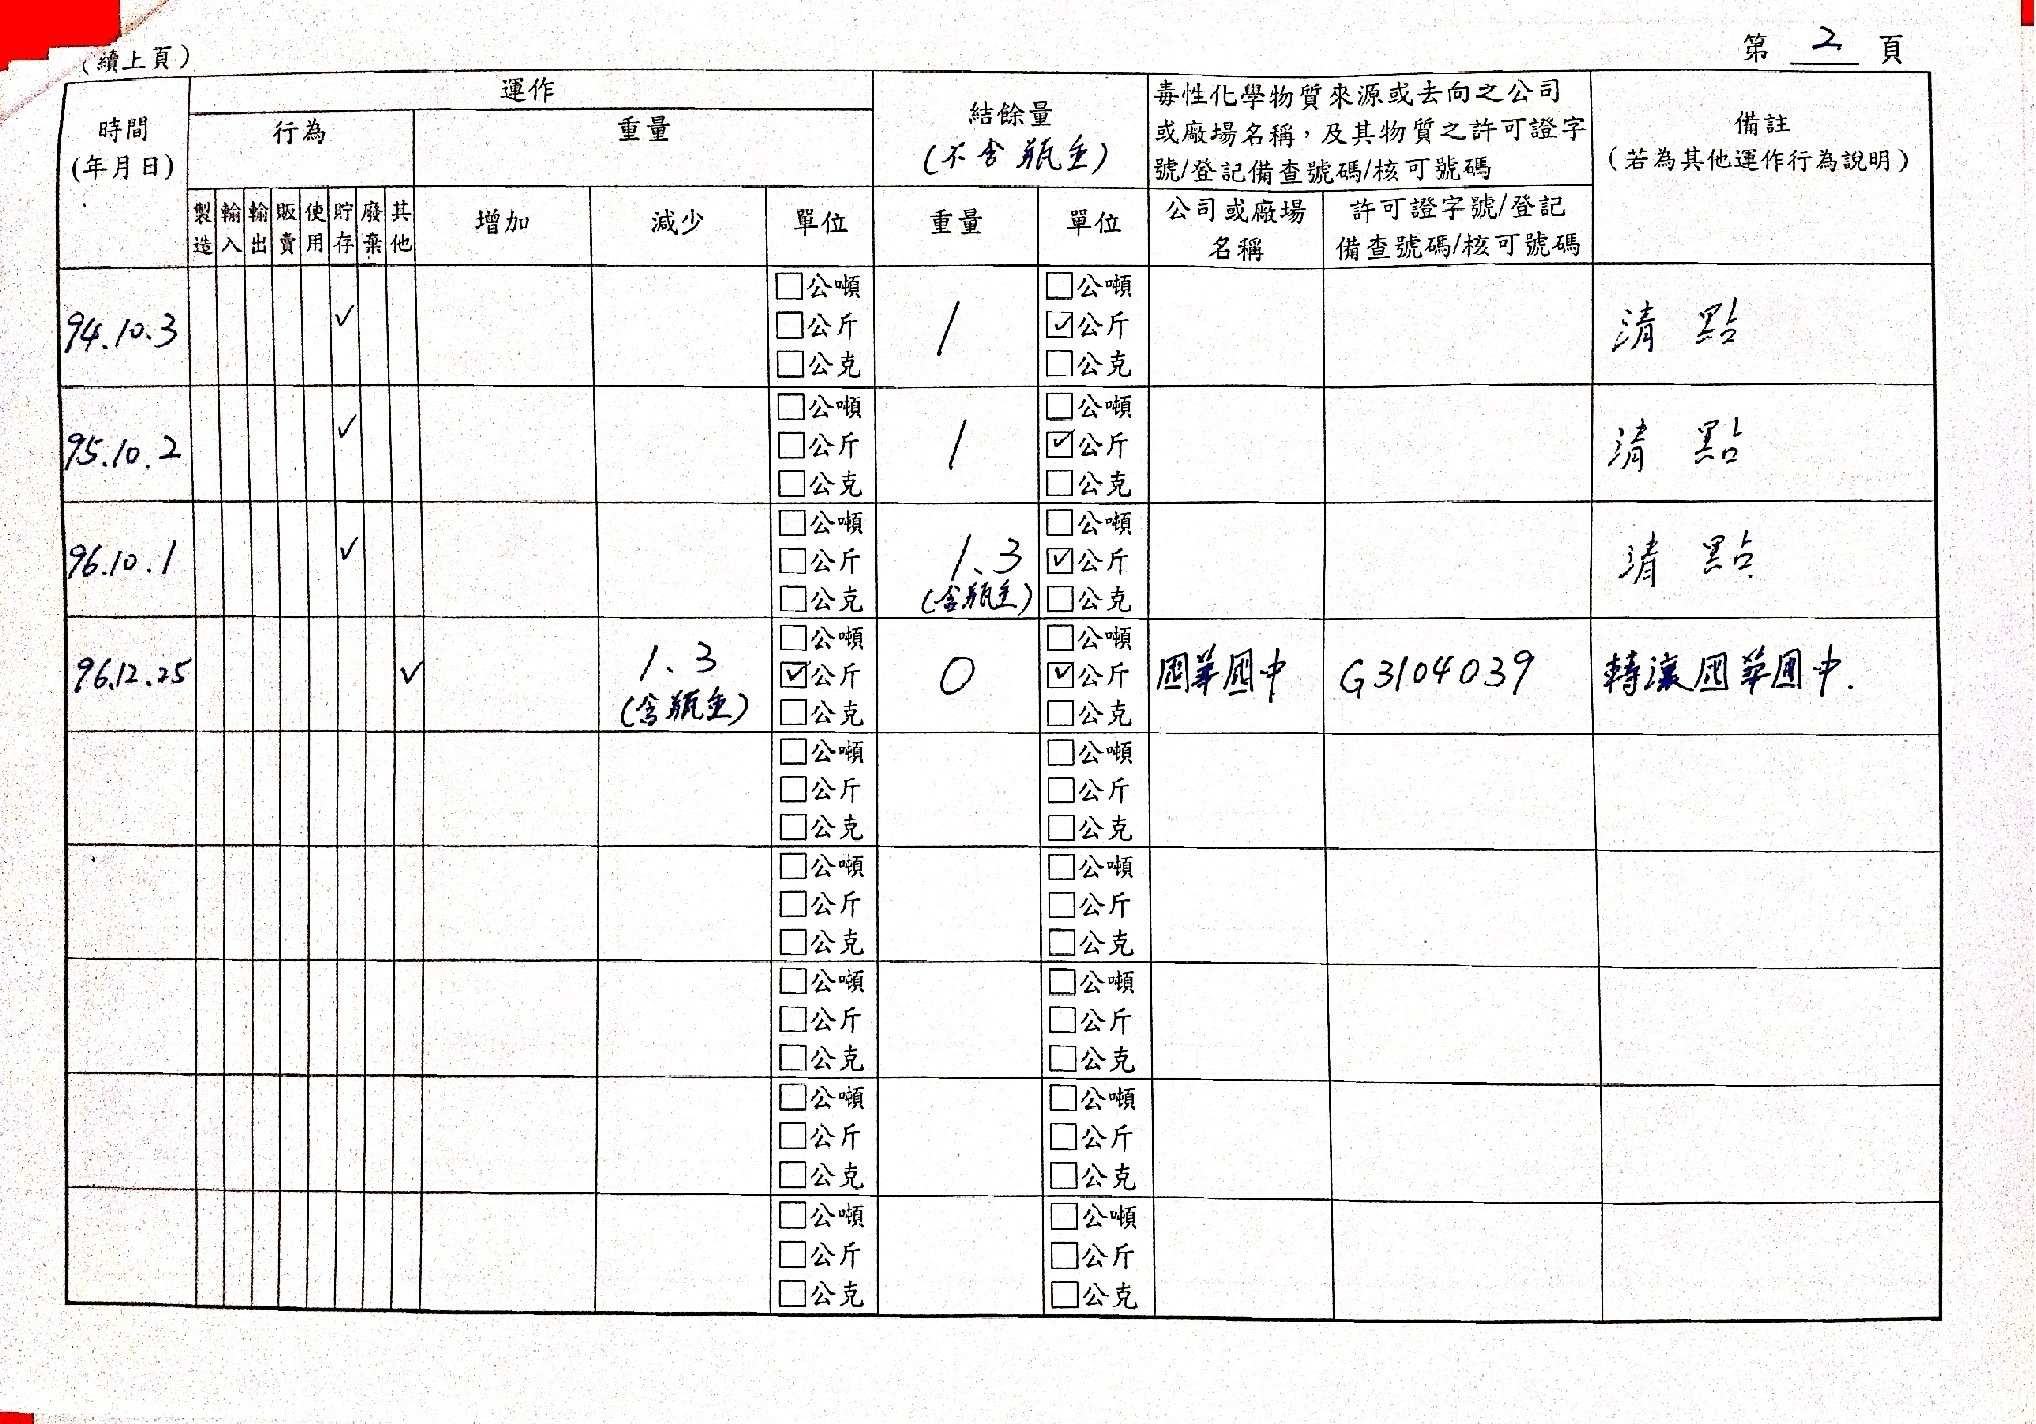 (續上頁)
第 2 頁
時間
(年月日)
運作
行為
重量
結餘量
(不含瓶重)
毒性化學物質來源或去向之公司
或廠場名稱，及其物質之許可證字
號/登記備查號碼/核可號碼
備註
(若為其他運作行為說明)
製造 輸入 輸出 販賣 使用 貯存 廢棄 其他
增加 減少 單位 重量 單位
公司或廠場
名稱
許可證字號/登記
備查號碼/核可號碼
□公噸 □公噸
94.10.3 ✓ □公斤 1 ☑公斤 清點
□公克 □公克
□公噸 □公噸
95.10.2 ✓ □公斤 1 ☑公斤 清點
□公克 □公克
□公噸 □公噸
96.10.1 ✓ □公斤 1.3 ☑公斤 清點
□公克 (含瓶重) □公克
□公噸 □公噸
96.12.25 ✓ 1.3 ☑公斤 0 ☑公斤 國華國中 G3104039 轉讓國華國中.
(含瓶重) □公克 □公克
□公噸 □公噸
□公斤 □公斤
□公克 □公克
□公噸 □公噸
□公斤 □公斤
□公克 □公克
□公噸 □公噸
□公斤 □公斤
□公克 □公克
□公噸 □公噸
□公斤 □公斤
□公克 □公克
□公噸 □公噸
□公斤 □公斤
□公克 □公克